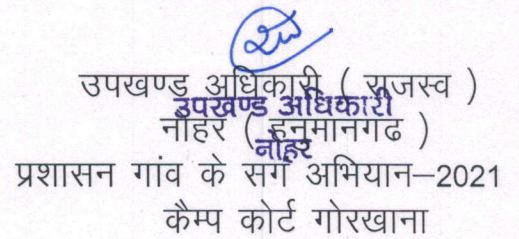 उपखण्ड अधिकारी ( राजस्व )
उपखण्ड अधिकारी
नोहर ( हनुमानगढ )
नोहर
प्रशासन गांव के संग अभियान–2021
कैम्प कोर्ट गोरखाना